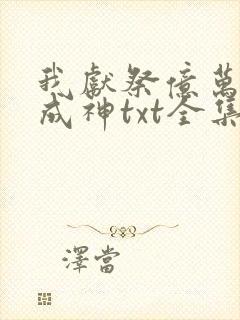 我獻祭億萬
成神txt全集
澤當